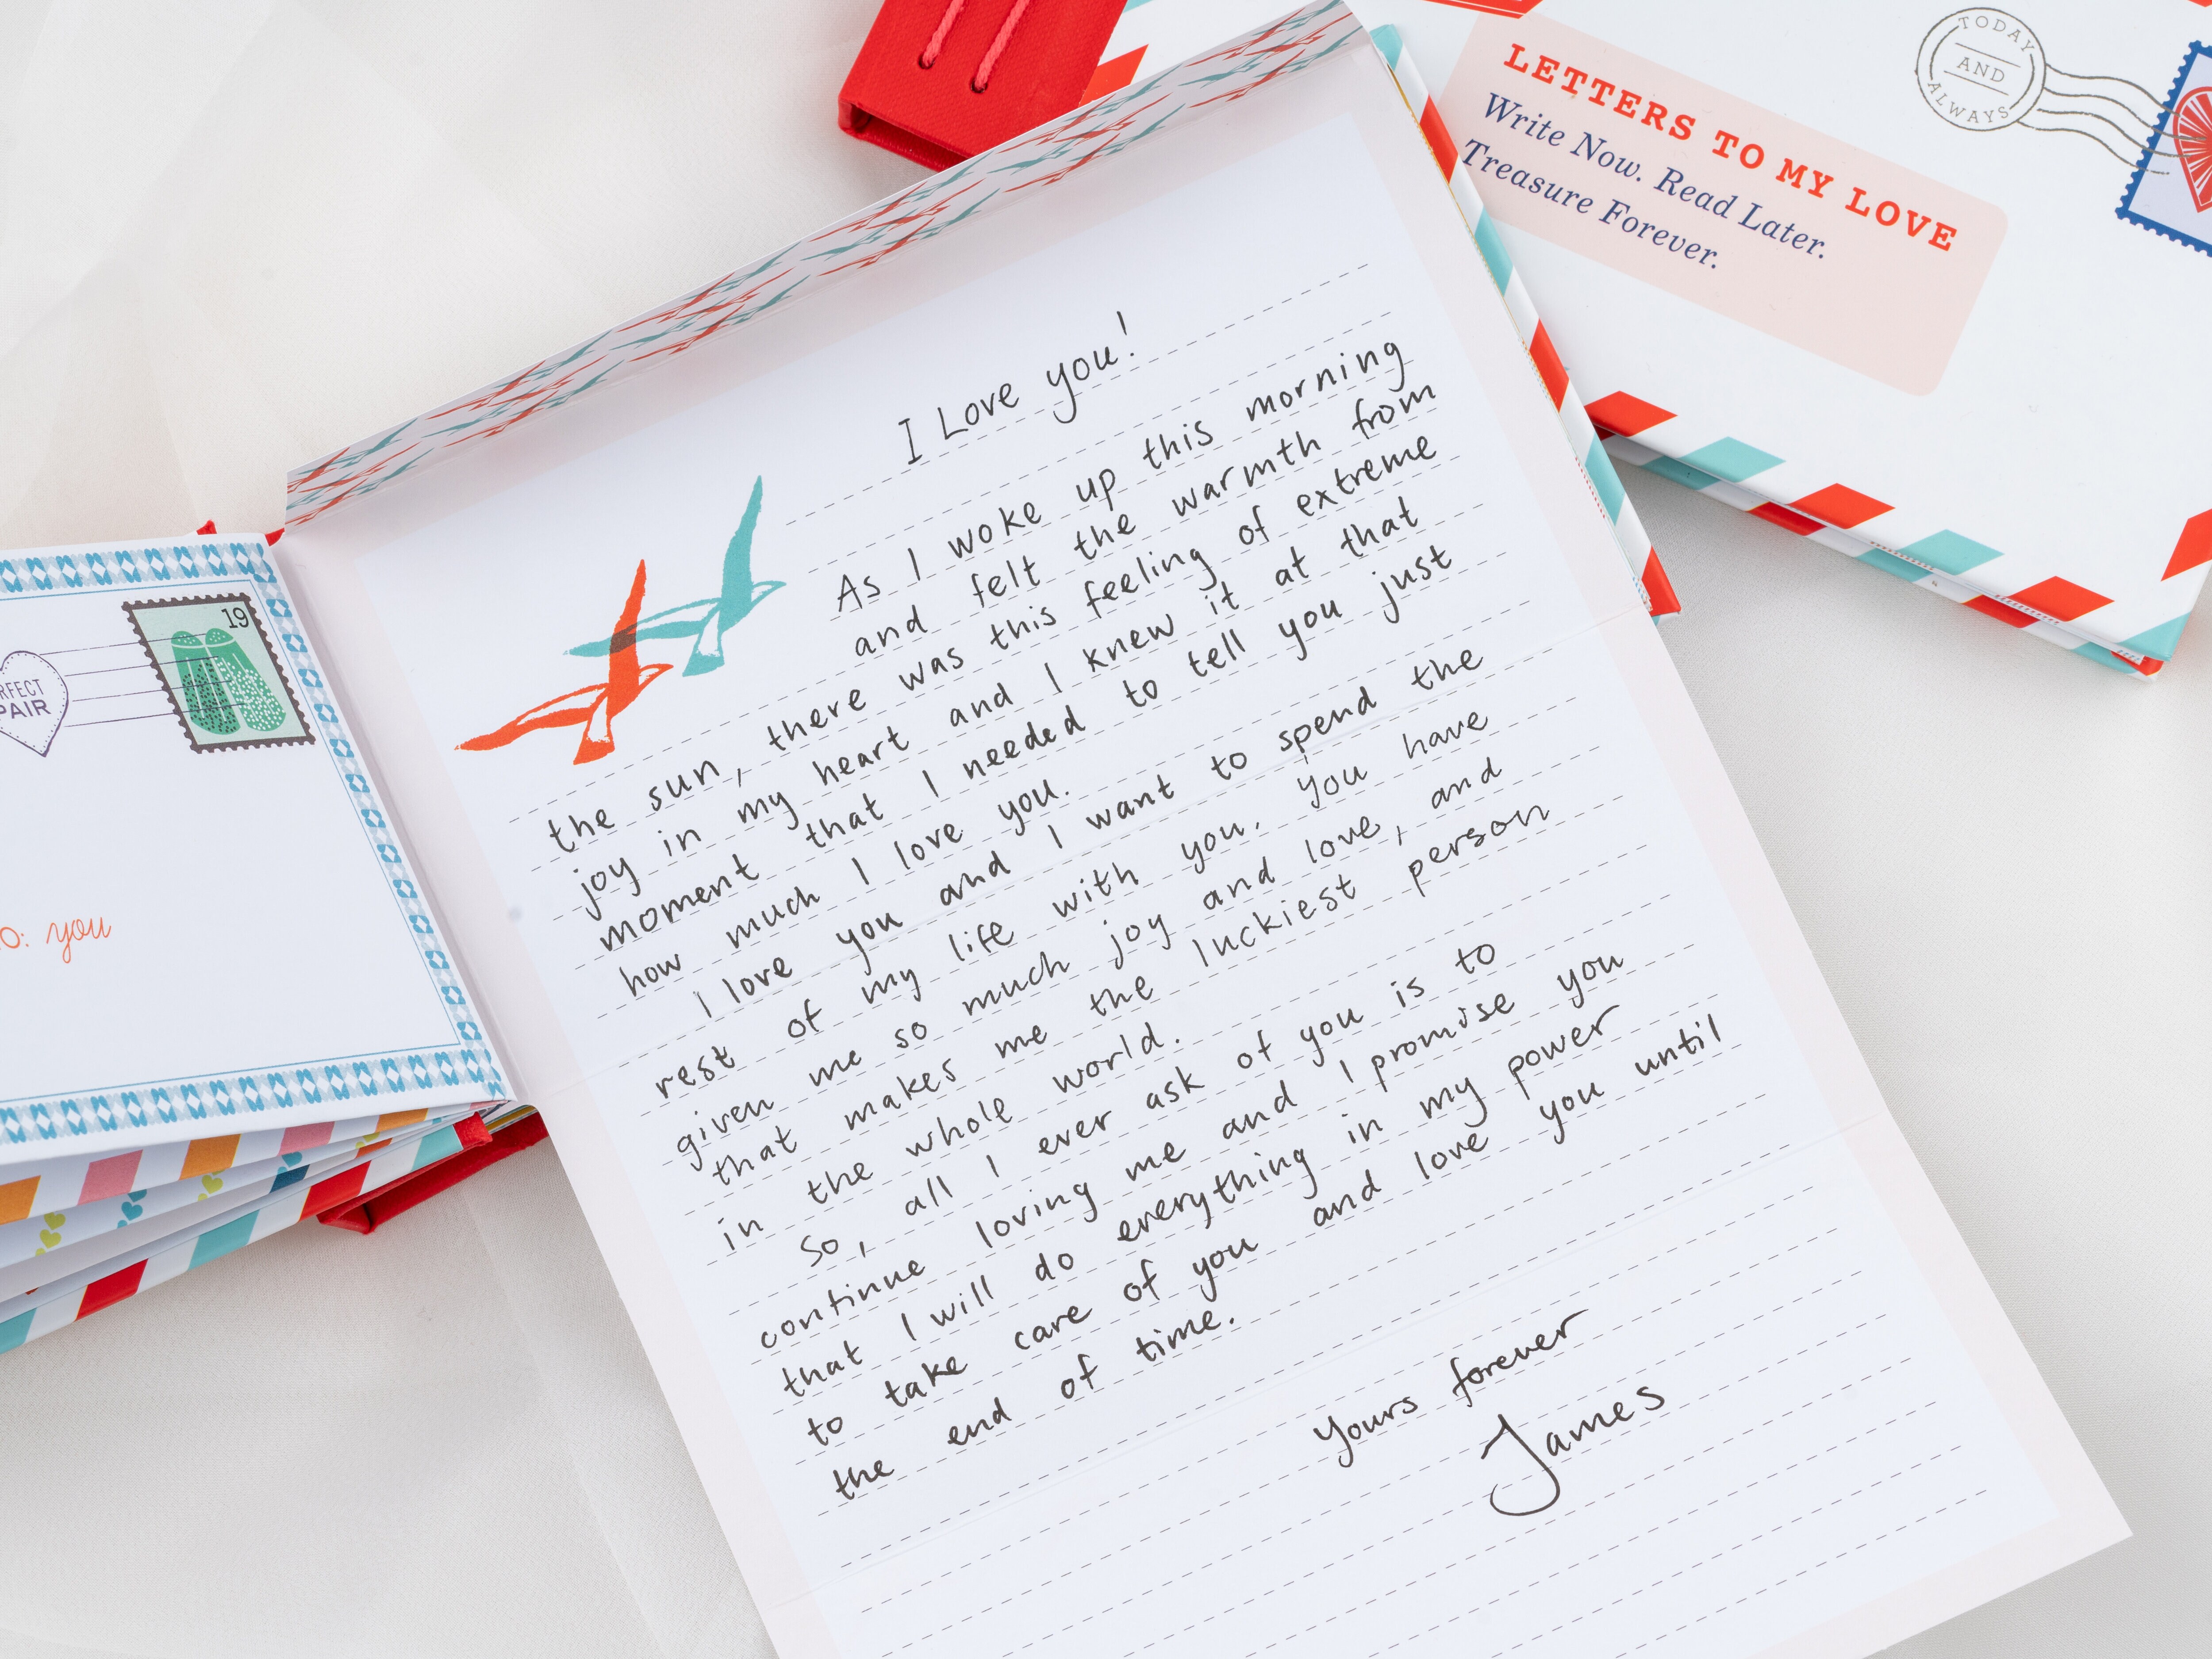 TODAY
AND
ALWAYS
LETTERS TO MY LOVE
Write Now. Read Later.
Treasure Forever.
19
PAIR
you
I Love you!
As I woke up this morning
and felt the warmth from
the sun, there was this feeling of extreme
joy in my heart and I knew it at that
moment that I needed to tell you just
how much I love you.
I love you and I want to spend the
rest of my life with you. You have
given me so much joy and love, and
that makes me the luckiest person
in the whole world.
So, all I ever ask of you is to
continue loving me and I promise you
that I will do everything in my power
to take care of you and love you until
the end of time.
Yours forever
James